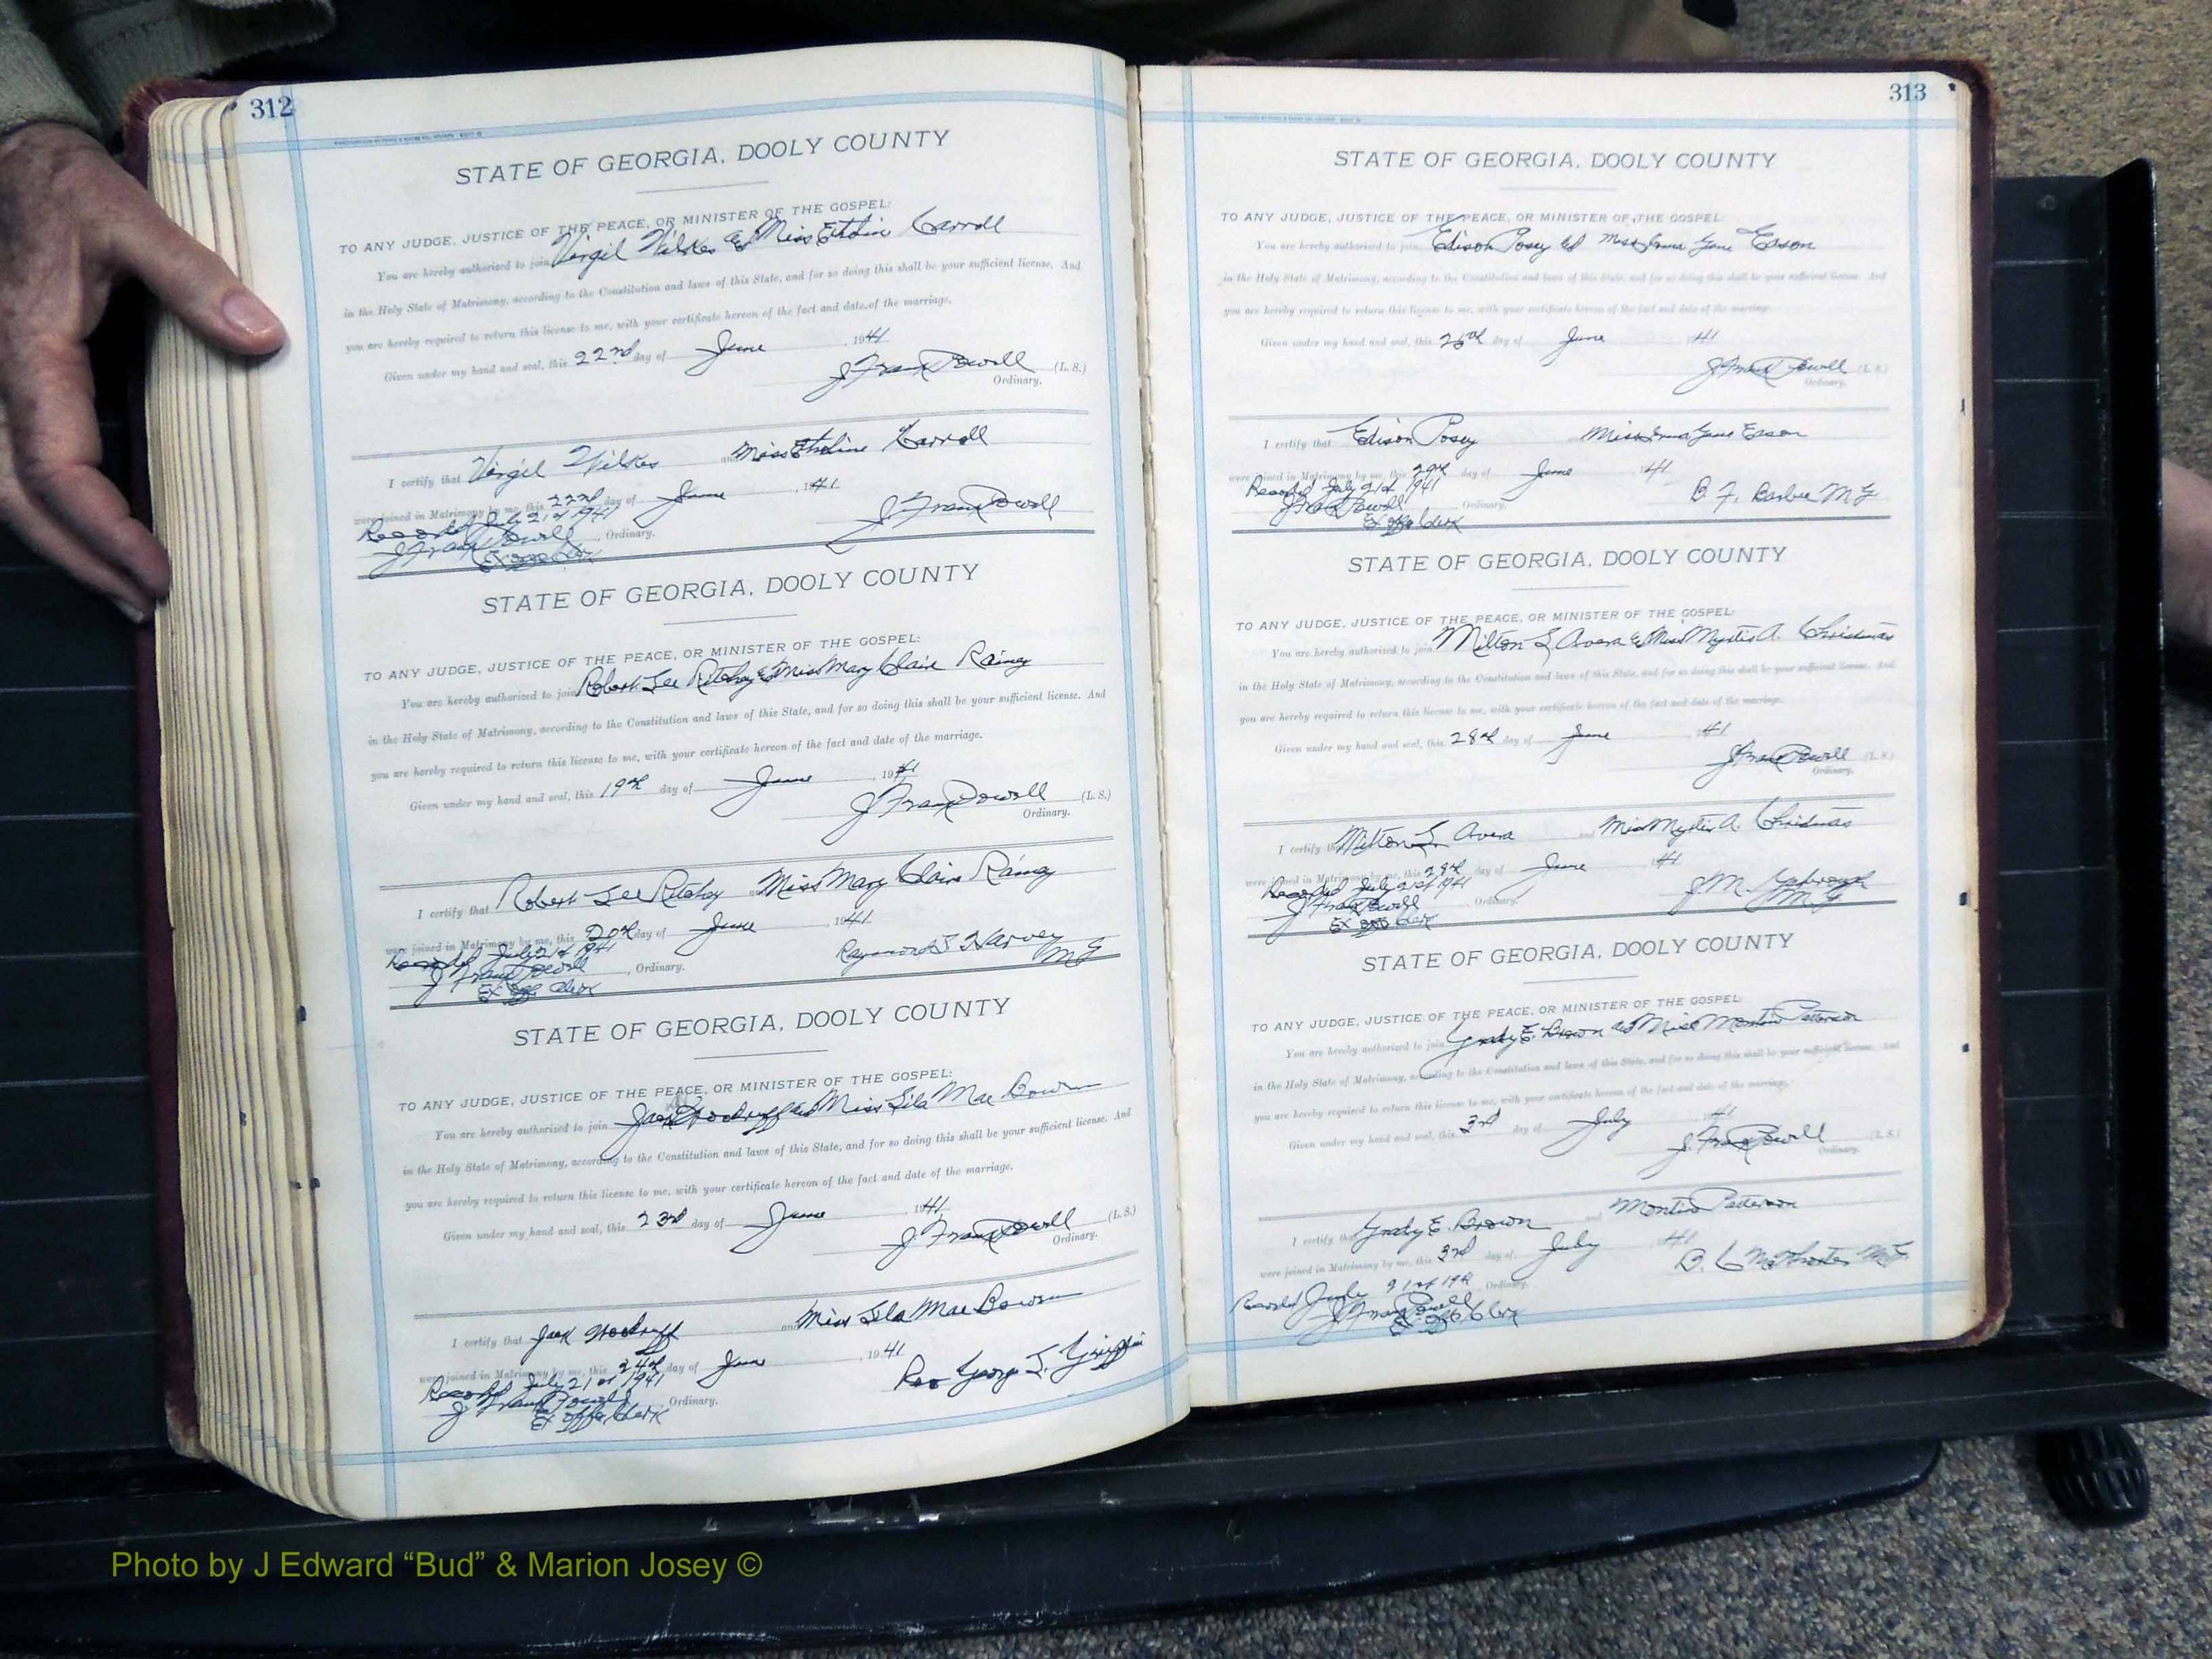 312
STATE OF GEORGIA, DOOLY COUNTY
TO ANY JUDGE, JUSTICE OF THE PEACE, OR MINISTER OF THE GOSPEL:
You are hereby authorized to join Virgil Wilkes & Miss Carroll
in the Holy State of Matrimony, according to the Constitution and laws of this State, and for so doing this shall be your sufficient license. And
you are hereby required to return this license to me, with your certificate hereon of the fact and date of the marriage.
Given under my hand and seal, this 22nd day of June, 1941
J. Frank Powell (L. S.)
Ordinary.
I certify that Virgil Wilkes and Miss Carroll
were joined in Matrimony by me, this 22nd day of June, 1941
Recorded July 21st 1941
J. Frank Powell, Ordinary. J. Frank Powell
Ex offo Clerk
STATE OF GEORGIA, DOOLY COUNTY
TO ANY JUDGE, JUSTICE OF THE PEACE, OR MINISTER OF THE GOSPEL:
You are hereby authorized to join Robert Lee Ritchey & Miss Mary Claire Rainey
in the Holy State of Matrimony, according to the Constitution and laws of this State, and for so doing this shall be your sufficient license. And
you are hereby required to return this license to me, with your certificate hereon of the fact and date of the marriage.
Given under my hand and seal, this 19th day of June, 1941
J. Frank Powell (L. S.)
Ordinary.
I certify that Robert Lee Ritchey and Miss Mary Claire Rainey
were joined in Matrimony by me, this 20th day of June, 1941
Recorded July 21st 1941
J. Frank Powell, Ordinary. Raymond Harvey MG
Ex offo Clerk
STATE OF GEORGIA, DOOLY COUNTY
TO ANY JUDGE, JUSTICE OF THE PEACE, OR MINISTER OF THE GOSPEL:
You are hereby authorized to join Jack Woodruff and Miss Lila Mae Bowen
in the Holy State of Matrimony, according to the Constitution and laws of this State, and for so doing this shall be your sufficient license. And
you are hereby required to return this license to me, with your certificate hereon of the fact and date of the marriage.
Given under my hand and seal, this 23rd day of June, 1941
J. Frank Powell (L. S.)
Ordinary.
I certify that Jack Woodruff and Miss Lila Mae Bowen
were joined in Matrimony by me, this 24th day of June, 1941
Recorded July 21st 1941 Rev George Griffin
J. Frank Powell, Ordinary.
Ex offo Clerk
313
STATE OF GEORGIA, DOOLY COUNTY
TO ANY JUDGE, JUSTICE OF THE PEACE, OR MINISTER OF THE GOSPEL:
You are hereby authorized to join Edison Posey and Miss Gene Eason
in the Holy State of Matrimony, according to the Constitution and laws of this State, and for so doing this shall be your sufficient license. And
you are hereby required to return this license to me, with your certificate hereon of the fact and date of the marriage.
Given under my hand and seal, this day of June 1941
J Frank Powell (L. S.)
Ordinary.
I certify that Edison Posey Miss Gene Eason
were joined in Matrimony by me, this 29th day of June 1941
Recorded July 21st 1941 B. F. Barbee MG
J Frank Powell Ordinary.
Ex offo Clerk
STATE OF GEORGIA, DOOLY COUNTY
TO ANY JUDGE, JUSTICE OF THE PEACE, OR MINISTER OF THE GOSPEL:
You are hereby authorized to join Milton L Avera & Miss Myrtis A. Christmas
in the Holy State of Matrimony, according to the Constitution and laws of this State, and for so doing this shall be your sufficient license. And
you are hereby required to return this license to me, with your certificate hereon of the fact and date of the marriage.
Given under my hand and seal, this 28th day of June 41
J Frank Powell (L. S.)
Ordinary.
I certify that Milton L Avera and Miss Myrtis A. Christmas
were joined in Matrimony by me, this 28th day of June 41
Recorded July 21st 1941 J M Yarbrough
J Frank Powell, Ordinary. MG
Ex offo Clerk
STATE OF GEORGIA, DOOLY COUNTY
TO ANY JUDGE, JUSTICE OF THE PEACE, OR MINISTER OF THE GOSPEL:
You are hereby authorized to join Grady E. Brown and Miss Patterson
in the Holy State of Matrimony, according to the Constitution and laws of this State, and for so doing this shall be your sufficient license. And
you are hereby required to return this license to me, with your certificate hereon of the fact and date of the marriage.
Given under my hand and seal, this 3rd day of July 1941
J. Frank Powell (L. S.)
Ordinary.
I certify that Grady E. Brown and Patterson
were joined in Matrimony by me, this 3rd day of July 1941
Recorded 21st Ordinary. B. MG
J Frank Powell
Ex offo Clerk
Photo by J Edward “Bud” & Marion Josey ©